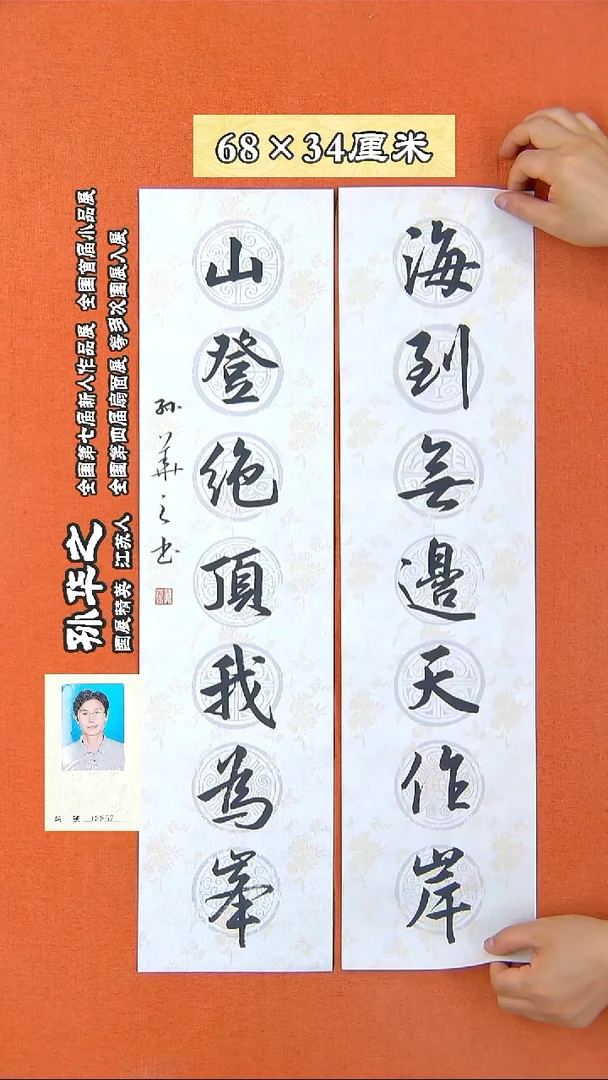 68×34厘米
海到無邊天作岸
山登絶頂我為峯
孙華之书
全国第七届新人作品展 全国首届小品展
全国第四届扇面展 等多次国展入展
孙华之
国展精英 江苏人